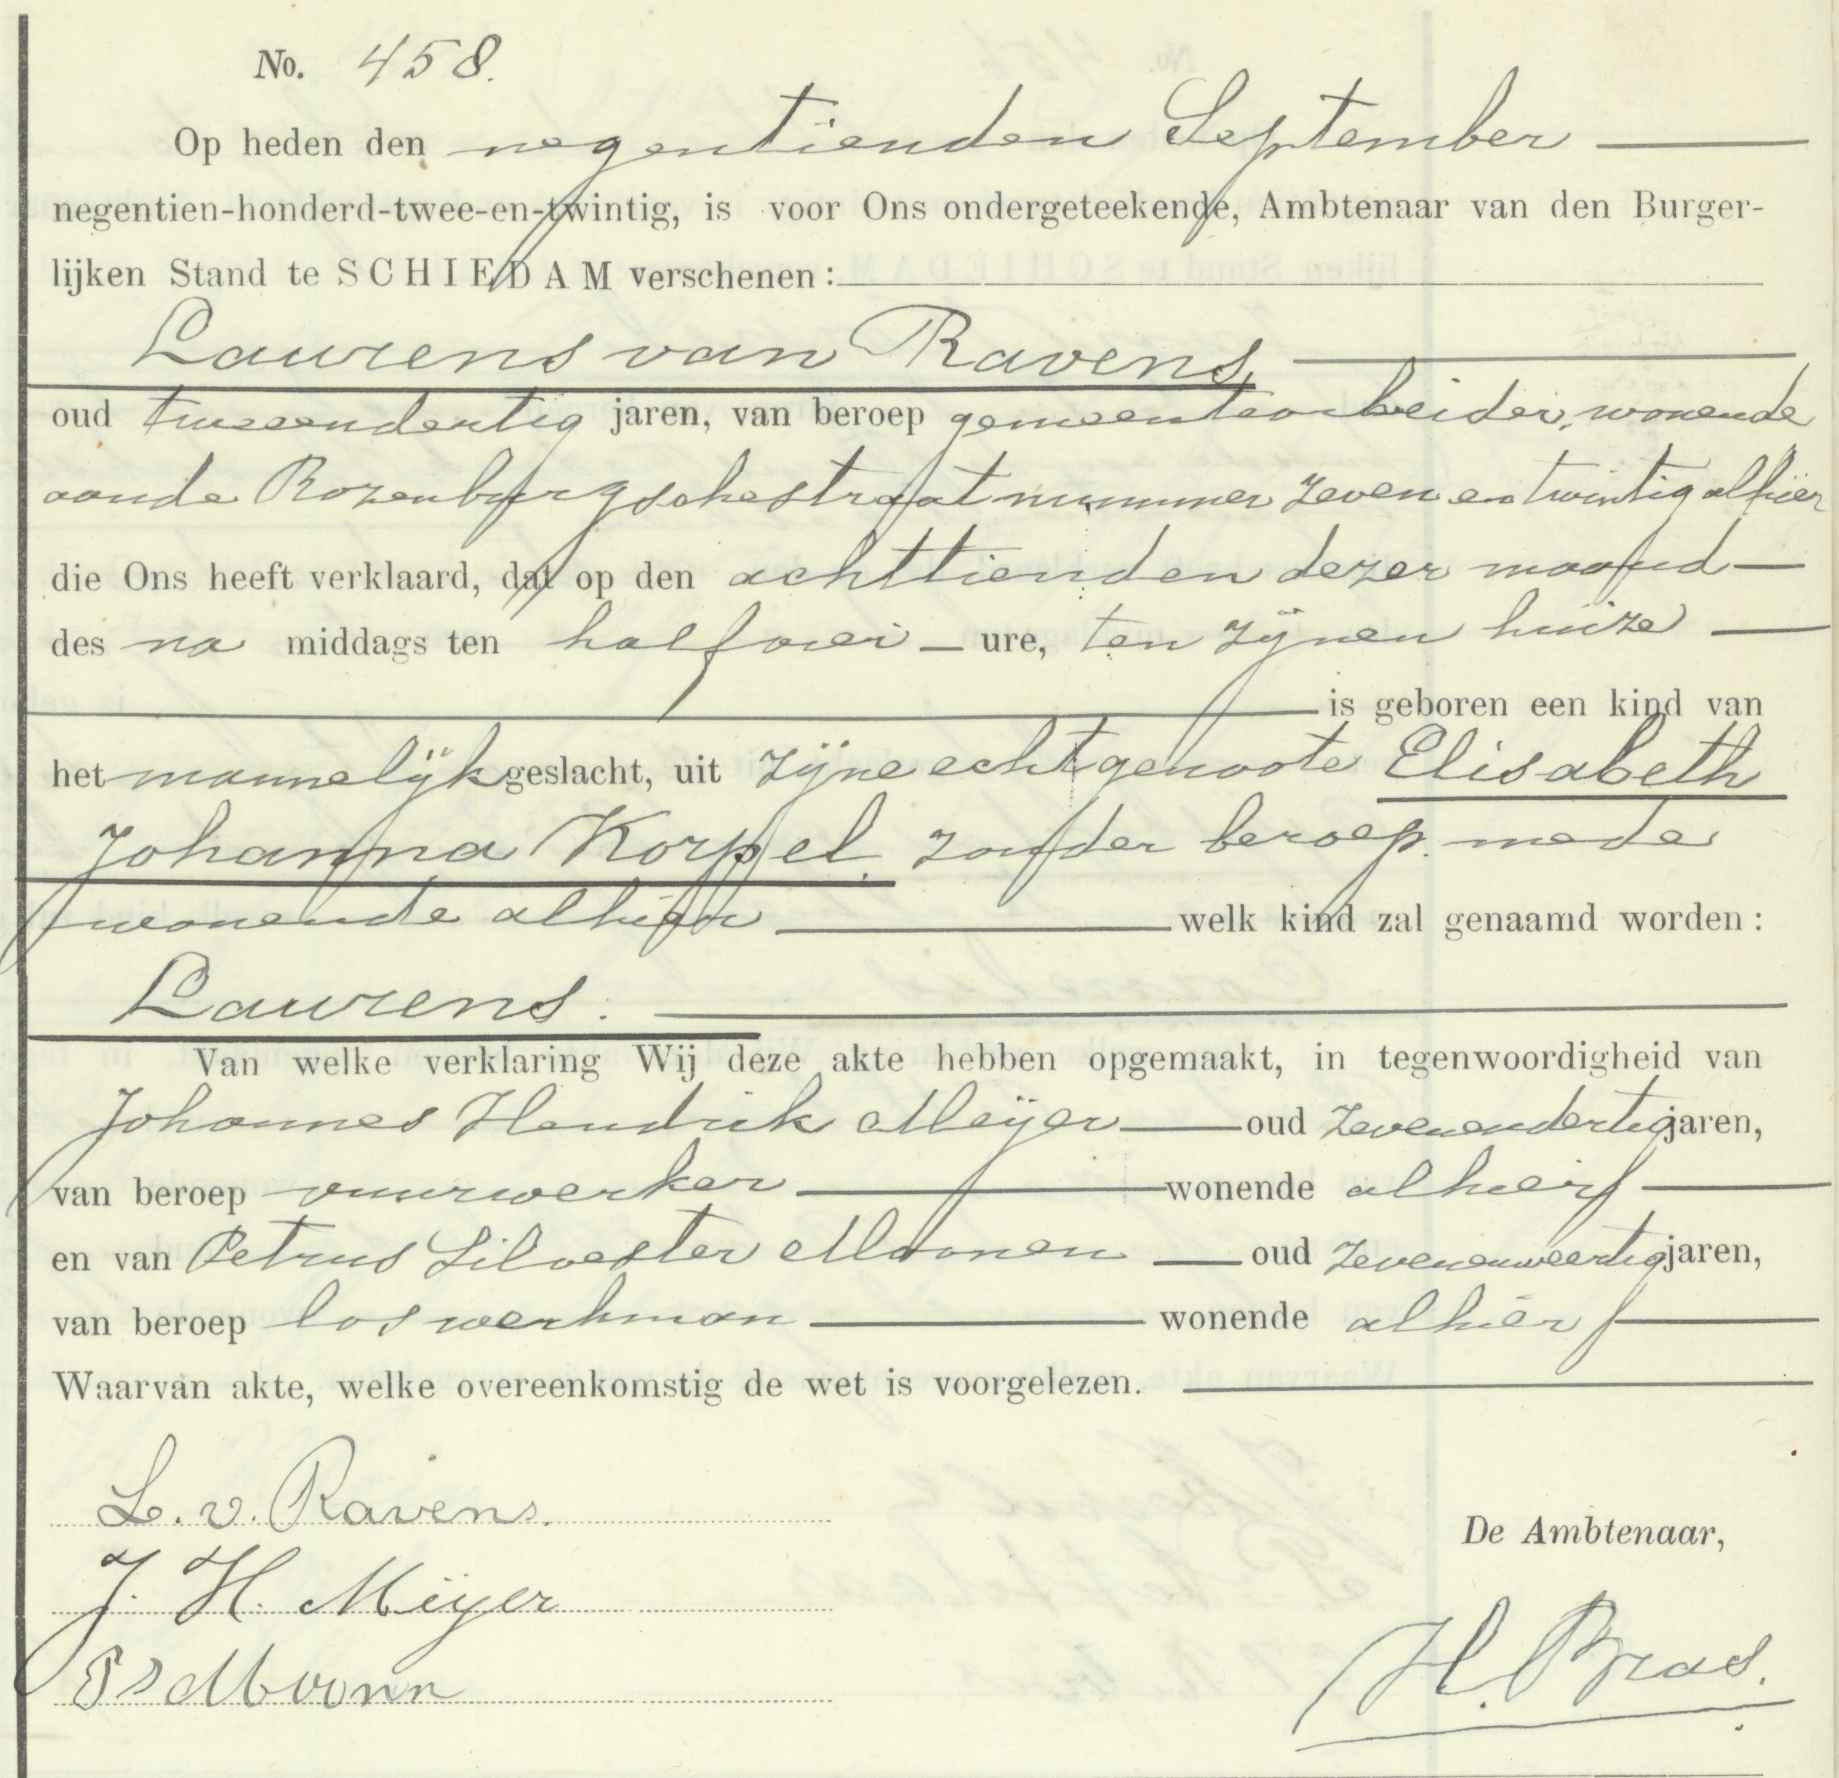 No. 458.
Op heden den negentienden September
negentien-honderd-twee-en-twintig, is voor Ons ondergeteekende, Ambtenaar van den Burger-
lijken Stand te SCHIEDAM verschenen:
Laurens van Ravens,
oud tweeendertig jaren, van beroep gemeentearbeider, wonende
aande Rozenburgschestraat nummer zeven en twintig alhier
die Ons heeft verklaard, dat op den achttienden dezer maand
des na middags ten half vier ure, ten zijnen huize
is geboren een kind van
het mannelijk geslacht, uit zijne echtgenoote Elisabeth
Johanna Korpel, zonder beroep, mede
wonende alhier welk kind zal genaamd worden:
Laurens.
Van welke verklaring Wij deze akte hebben opgemaakt, in tegenwoordigheid van
Johannes Hendrik Meijer oud zevenendertig jaren,
van beroep vuurwerker wonende alhier
en van Petrus Silvester Moonen oud zevenenveertig jaren,
van beroep los werkman wonende alhier
Waarvan akte, welke overeenkomstig de wet is voorgelezen.
L. v. Ravens.
De Ambtenaar,
J. H. Meijer
H. Bras.
P S Moonn